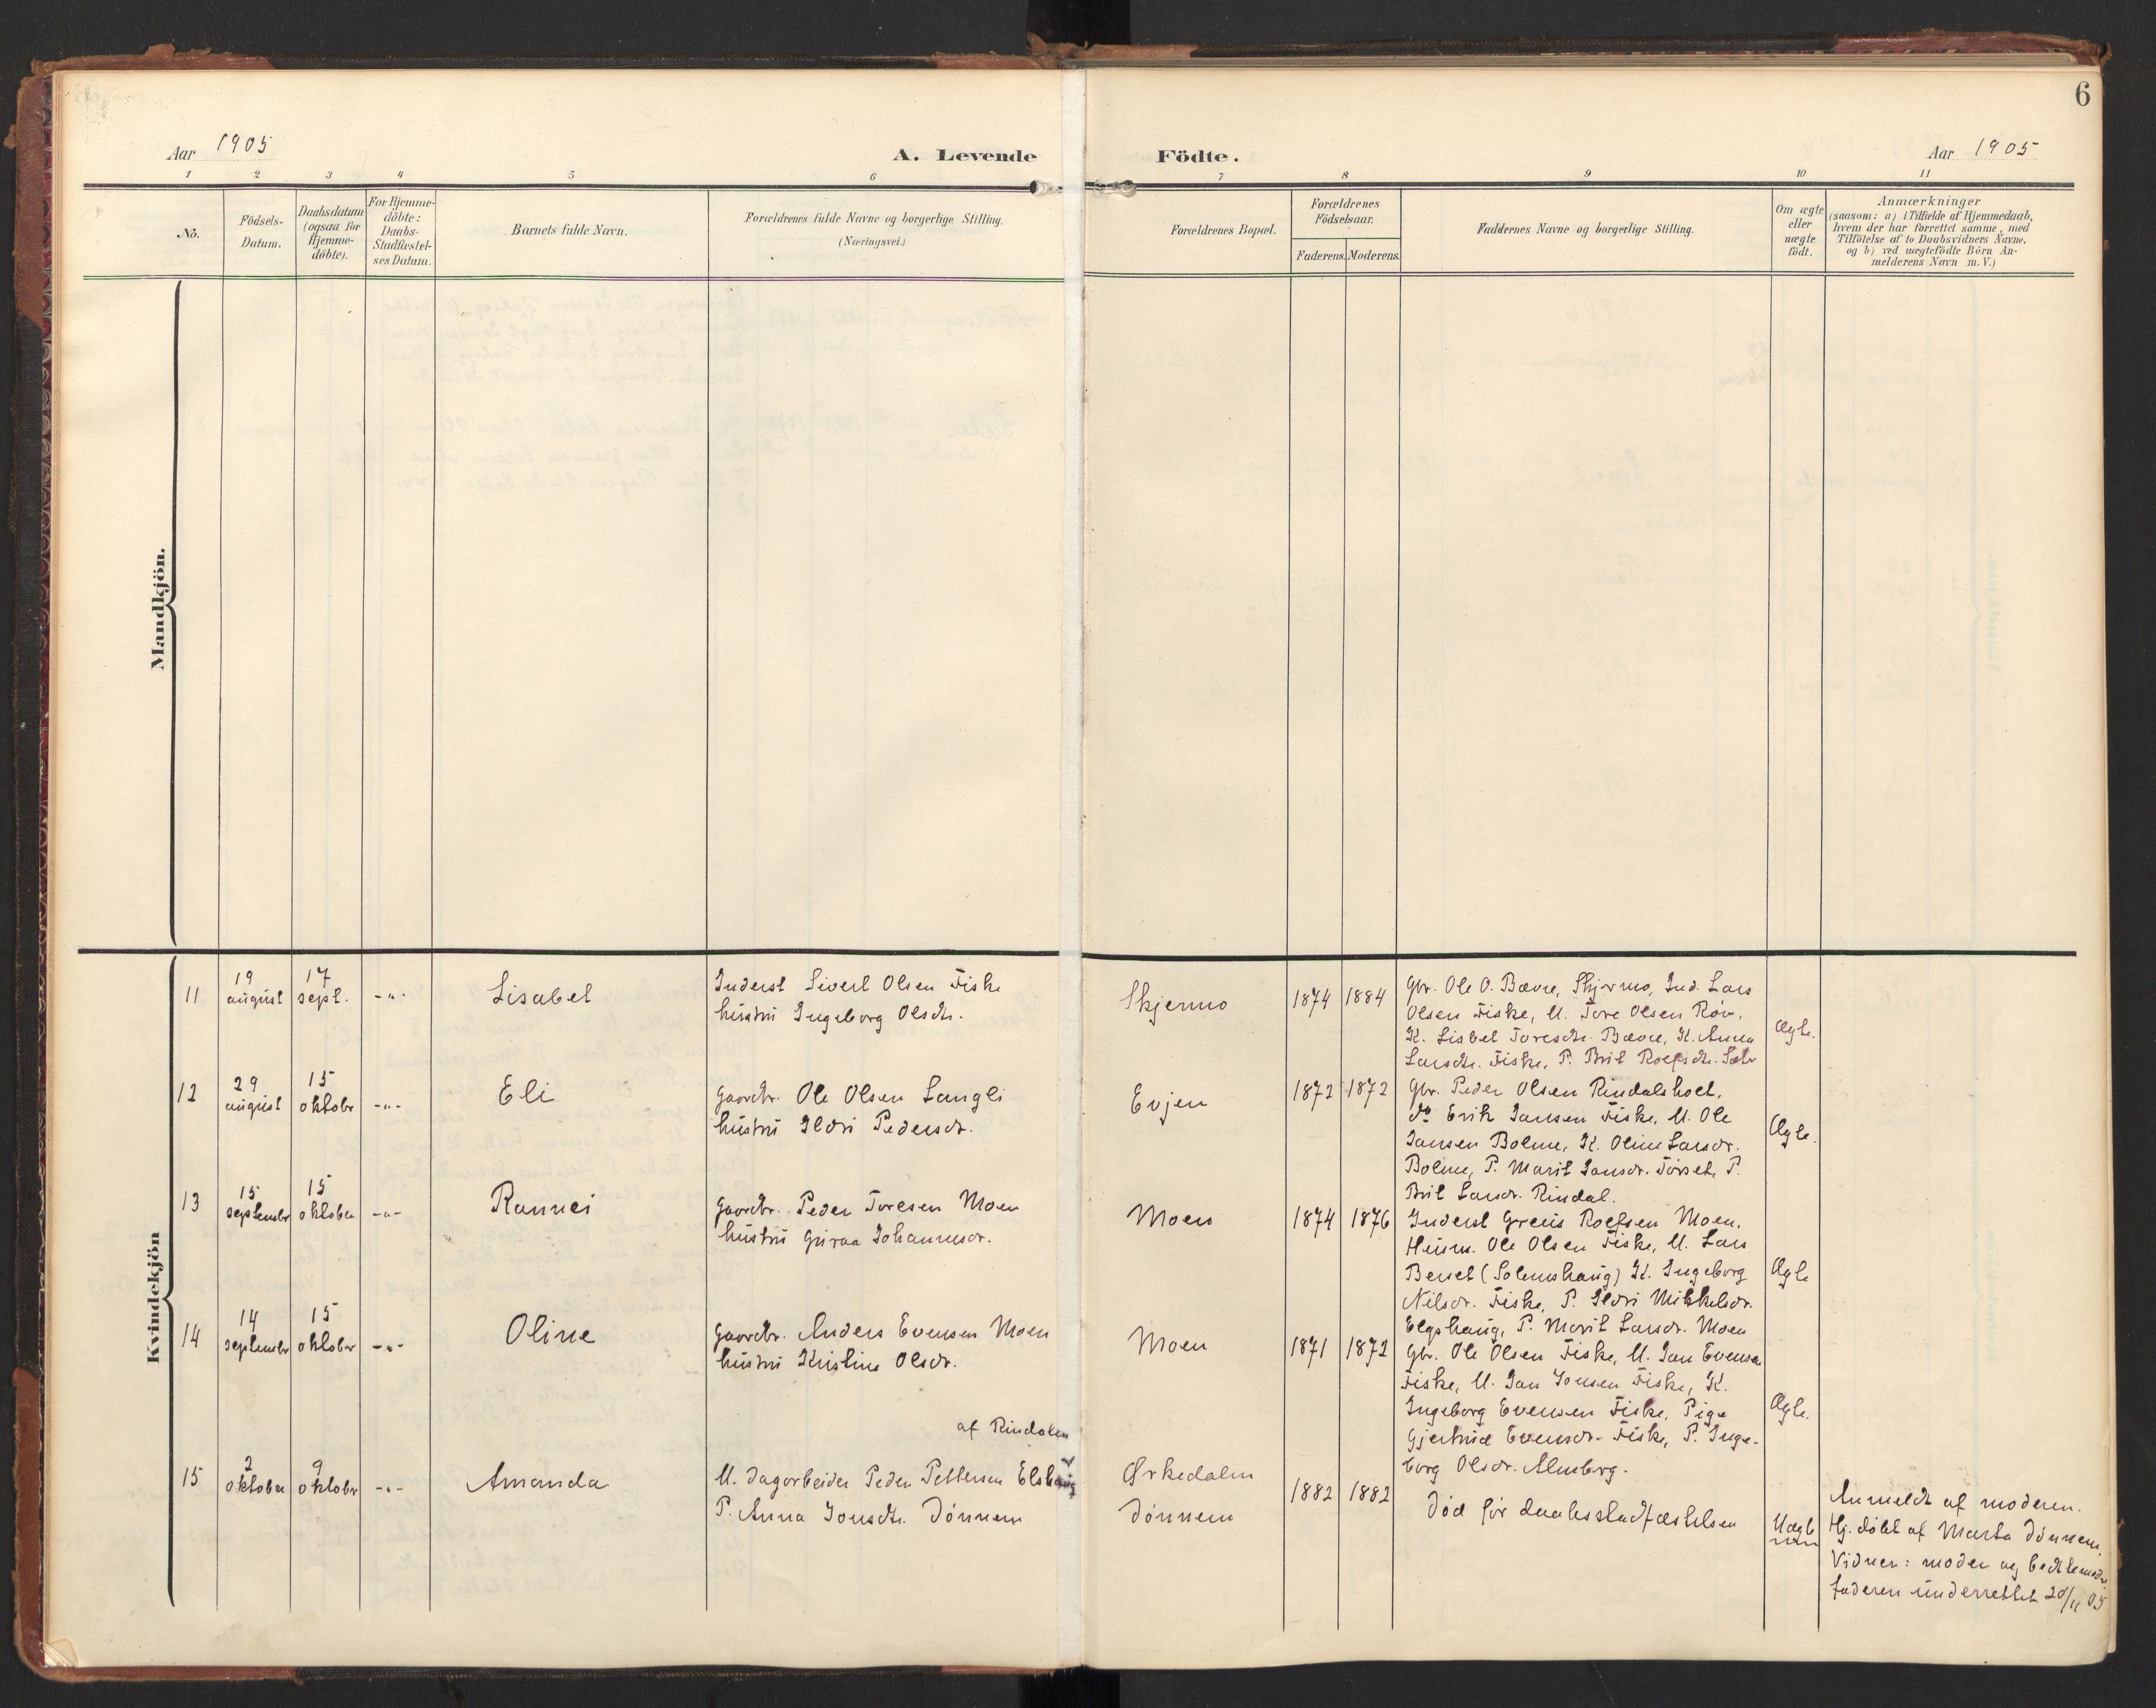 6
Aar 1905
A. Levende
Födte.
Aar 1905
1 2 3 4 5 6 7 8 9 10 11
No.
Födsels-
Datum.
Daabsdatum
(ogsaa for
Hjemme-
döbte).
For Hjemme-
döbte:
Daabs-
Stadfæstel-
ses Datum.
Barnets fulde Navn.
Forældrenes fulde Navne og borgerlige Stilling.
(Næringsvei.)
Forældrenes Bopæl.
Forældrenes
Födselsaar.
Faderens. Moderens.
Faddernes Navne og borgerlige Stilling.
Om ægte
eller
uægte
födt.
Anmærkninger
(saasom: a) i Tilfælde af Hjemmedaab,
hvem der har forrettet samme, med
Tilföielse af to Daabsvidners Navne.
og b) ved uægtefödte Börn An-
melderens Navn m. V.)
Mandkjön.
Kvindekjön
11
19
august
17
sept.
-"-
Lisabet
Inderst Sivert Olsen Fiske
hustru Ingeborg Olsdtr.
Skjermo
1874
1884
Gbr. Ole O. Bævre, Skjermo, Ind. Lars
Olsen Fiske, U. Tore Olsen Røv,
K. Lisbet Toresdtr. Bævre, K. Anna
Larsdtr. Fiske, P. Brit Roefsdtr.
Ægte.
12
29
august
15
oktobr
-"-
Eli
Gaardbr. Ole Olsen Langli
hustru Ildri Pedersdr.
Evjen
1872
1872
Gbr. Peder Olsen Rindalshoel,
do Erik Jansen Fiske, U. Ole
Jansen Bolme, K. Oline Larsdr.
Bolme, P. Marit Jansdr. Tørset, P.
Brit Larsdr. Rindal.
Ægte.
13
15
septembr
15
oktober
-"-
Rannei
Gaardbr. Peder Toresen Moen
hustru Guraa Johannesdr.
Moen
1874
1876
Inderst Greius Roefsen Moen,
Husm. Ole Olsen Fiske, U. Lars
Berset (Solemshaug) K. Ingeborg
Nilsdr. Fiske, P. Ildri Mikkelsdr.
Elgshaug, P. Marit Larsdr. Moen
Ægte
14
14
septembr
15
oktober
-"-
Oline
Gaardbr. Anders Evensen Moen
hustru Kristine Olsdr.
Moen
1871
1872
Gbr. Ole Olsen Fiske, U. Jan Evensen
Fiske, U. Jan Jonsen Fiske, K.
Ingeborg Evensen Fiske, Pige
Gjertrud Evensdr. Fiske, P. Inge-
borg Olsdr. Almberg.
Ægte.
15
2
oktober
9
oktober
-"-
Amanda
af Rindalen
U. Dagarbeider Peder Pettersen Elshaug
P. Anna Jonsdtr. Dønnem
Ørkedalen
Dønnem
1882
1882
Død før daabsstadfæstelsen
Uægte
Anmeldt af moderen.
Hj. døbt af Marta Dønnem.
Vidner: moder og bedstemoder.
faderen underrettet 20/11 05